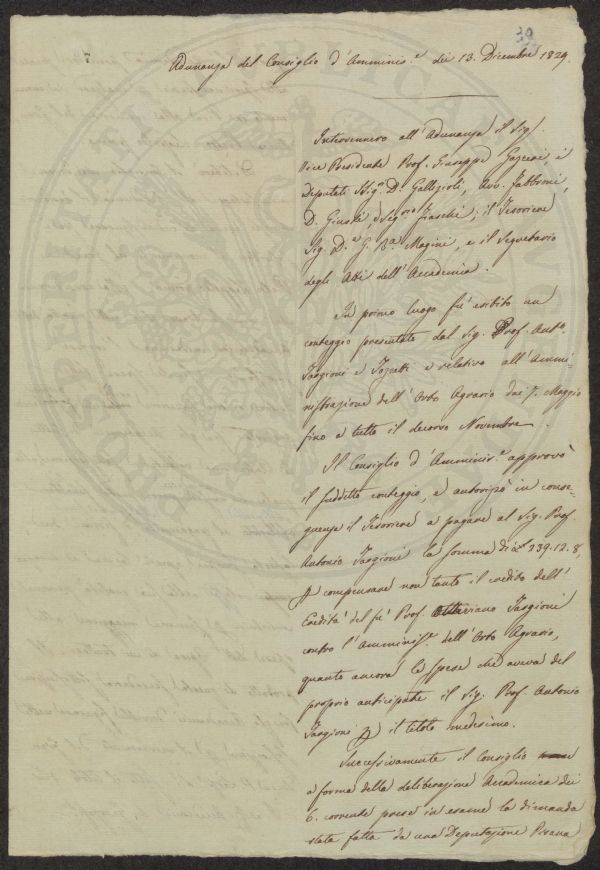 39
Adunanza del Consiglio d'Amminis.e dei 13. Dicembre 1829.
Intervennero all'Adunanza il Sig.
Vice Presidente Prof. Giuseppe Gazzeri, i
Deputati Sig.ri D. Gallizioli, Avv. Fabbroni,
D. Giusti, Sig. Fiaschi; il Tesoriere
Sig. D.e G. Ba. Magini, e il Segretario
degli Atti dell'Accademia.
In primo luogo fù esibito un
conteggio presentato dal Sig. Prof. Anto.
Targioni e Tozzetti e relativo all'Ammi-
nistrazione dell'Orto Agrario dai 7. Maggio
fino a tutto il decorso Novembre.
Il Consiglio d'Amminis.e approvò
il suddetto conteggio, e autorizzò in conse-
guenza il Tesoriere a pagare al Sig. Prof.
Antonio Targioni la somma di £ 239.12.8,
p compensare non tanto il credito dell'
Eredità del fù Prof. Ottaviano Targioni
contro l'Amminis.e dell'Orto Agrario,
quanto ancora le spese che aveva del
proprio anticipate il Sig. Prof. Antonio
Targioni p il titolo medesimo.
Successivamente il Consiglio
a forma della deliberazione Accademica dei
6. corrente prese in esame la dimanda
stata fatta da una Deputazione Pisana